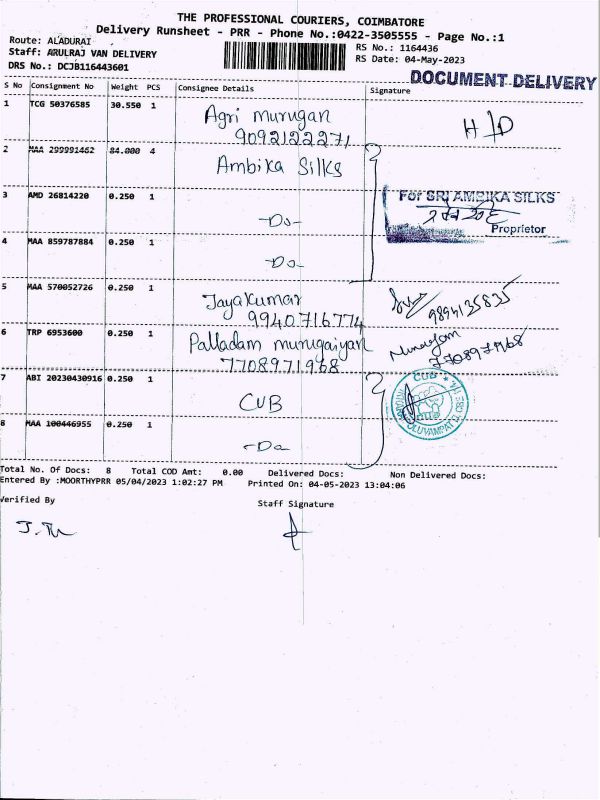 THE PROFESSIONAL COURIERS, COIMBATORE
Delivery Runsheet - PRR - Phone No.:0422-3505555 - Page No.:1
Route: ALADURAI
Staff: ARULRAJ VAN DELIVERY
DRS No.: DCJB116443601
RS No.: 1164436
RS Date: 04-May-2023
DOCUMENT DELIVERY
S No Consignment No Weight PCS Consignee Details Signature
1 TCG 50376585 30.550 1 Agri murugan H/D
9092122271
2 MAA 299991462 84.000 4 Ambika Silks
3 AMD 26814220 0.250 1 -Do-
For SRI AMBIKA SILKS
Proprietor
4 MAA 859787884 0.250 1 -Do-
5 MAA 570052726 0.250 1 Jayakumar
9940716774 9894135835
6 TRP 6953600 0.250 1 Palladam murugaiyan Murugan
7708971968 7708971968
7 ABI 20230430916 0.250 1 CUB
CUB
8 MAA 100446955 0.250 1 -Do
Total No. Of Docs: 8 Total COD Amt: 0.00 Delivered Docs: Non Delivered Docs:
Entered By :MOORTHYPRR 05/04/2023 1:02:27 PM Printed On: 04-05-2023 13:04:06
Verified By Staff Signature